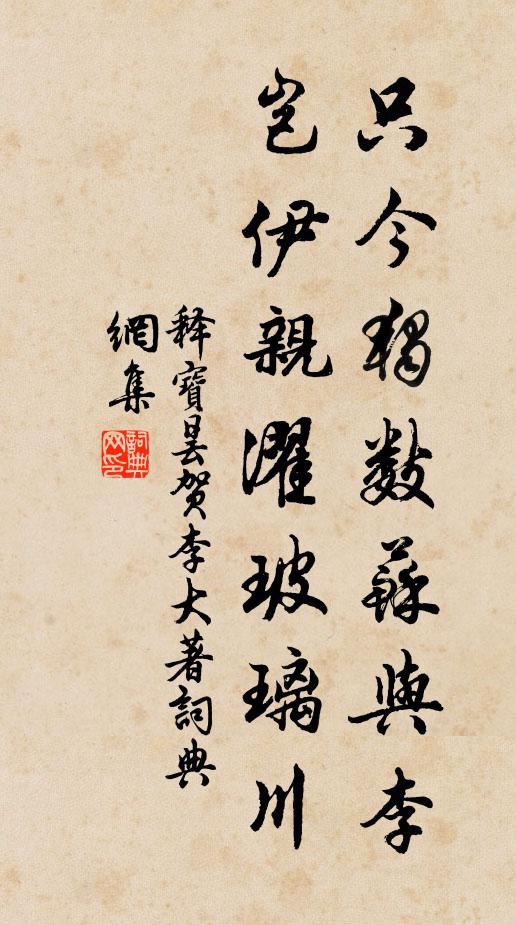 只今獨數蘇與李
豈伊親濯玻璃川
释寶曇賀李大著詞典
網集
詞典网印